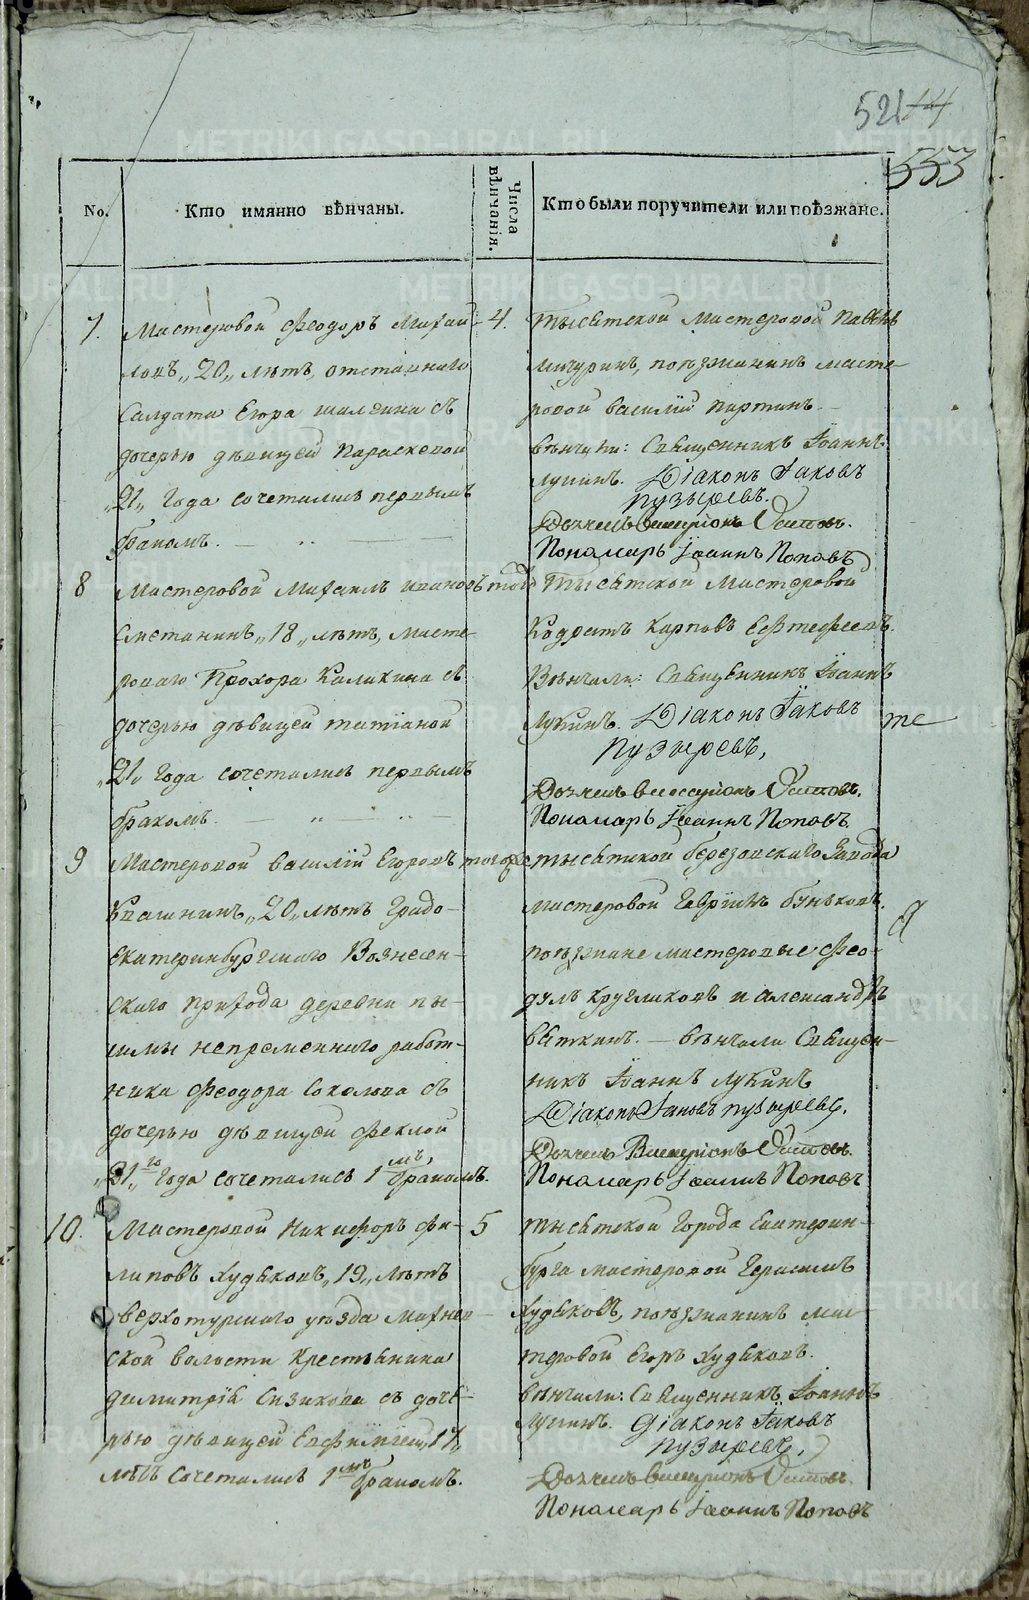 52 14
553
No.
Кто имянно вѣнчаны.
Числа вѣнчанія.
Кто были поручители или поѣзжане.
7. Мастеровой Феодоръ Михай-
ловъ „20„ лѣтъ, отставнаго
Салдата Егора съ
дочерью дѣвицей Параскевой
„21„ Года сочетались первымъ
бракомъ.
4.
Тысятской Мастеровой Павелъ
Мичуринъ, поѣзжанинъ масте-
ровой Василій Партинъ.
вѣнчали: Священникъ Іоаннъ
Лукинъ. Діаконъ Іаковъ
Пузыревъ.
Дьячекъ Осиповъ.
Пономарь Іоаннъ Поповъ
8 Мастеровой Михаилъ Ивановъ
Сметанинъ „18„ лѣтъ, масте-
роваго Прохора Каликина съ
дочерью дѣвицей Татіаной
„21„ Года сочетались первымъ
бракомъ.
того
Тысятской Мастеровой
Кодратъ Карповъ Ефтефеевъ.
Вѣнчали: Священникъ Іоаннъ
Лукинъ. Діаконъ Іаковъ
Пузыревъ,
Дьячекъ Осиповъ.
Пономарь Іоаннъ Поповъ.
те
9 Мастеровой Василій Егоровъ
Квашнинъ „20„ лѣтъ Градо-
екатеринбургскаго Вознесен-
скаго прихода деревни пы-
шмы непременнаго работ-
ника Феодора Соколова съ
дочерью дѣвицей Феклой
„21„го Года сочетались 1мъ бракомъ.
тогоже
тысятской березовскаго Завода
мастеровой Гавріилъ буньковъ.
поѣзжане мастеровые Фео-
дулъ Кругликовъ и Александръ
вяткинъ. — вѣнчали Священ-
никъ Іоаннъ Лукинъ
Діаконъ Іаковъ пузыревъ.
Дьячекъ Осиповъ.
Пономарь Іоаннъ Поповъ
10. Мастеровой Никифоръ Фи-
липовъ Худяковъ „19„ лѣтъ
верхотурскаго уѣзда Махнев-
ской волости Крестьянина
димитрія Сизикова съ доче-
рью дѣвицей Евфиміей „17„
лѣтъ сочетались 1мъ бракомъ.
5
тысятской Города Екатерин-
бурга мастеровой Герасимъ
Худяковъ, поѣзжанинъ мас-
теровой Егоръ Худяковъ.
вѣнчали: Священникъ Іоаннъ
Лукинъ. Діаконъ Іаковъ
Пузыревъ,
Дьячекъ Осиповъ.
Пономарь Іоаннъ Поповъ
METRIKI.GASO-URAL.RU